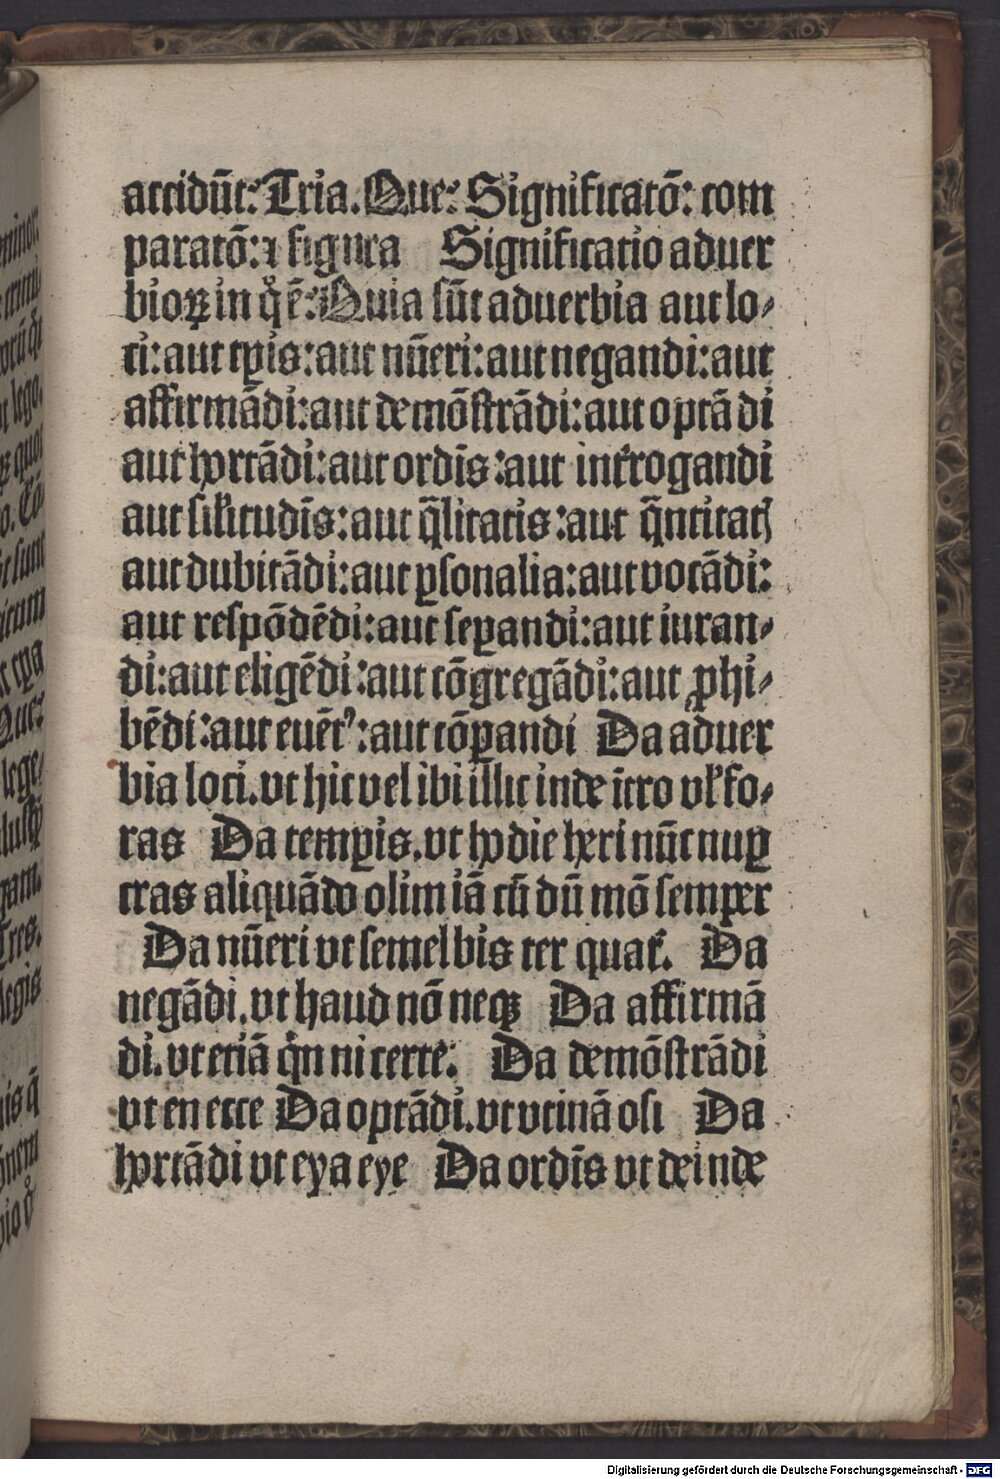 accidūt: Tria. Que: Significatō: com
paratō: ⁊ figura Significatio aduer
bioꝝ in qͦ ē: Quia sūt aduerbia aut lo⸗
ci: aut tp̄is: aut nūeri: aut negandi: aut
affirmādi: aut demōstrādi: aut optādi
aut hortādi: aut ordīs: aut int̄rogandi
aut sil̄itudīs: aut q̄litatis: aut q̄ntitatꝭ
aut dubitādi: aut ꝑsonalia: aut vocādi:
aut respōdēdi: aut seꝑandi: aut iuran⸗
di: aut eligēdi: aut cōgregādi: aut ꝓhi⸗
bēdi: aut euēt⁹: aut cōꝑandi Da aduer
bia loci. vt hic vel ibi illic inde ītro vl̄ fo⸗
ras Da temꝑis. vt hodie heri nūc nuꝑ
cras aliquādo olim iā cū dū mō semper
Da nūeri vt semel bis ter quat̄. Da
negādi. vt haud nō neqꝫ Da affirmā
di. vt etiā qͥn ni certe: Da demōstrādi
vt en ecce Da optādi. vt vtinā osi Da
hortādi vt eya eye Da ordīs vt deinde
Digitalisierung gefördert durch die Deutsche Forschungsgemeinschaft - DFG